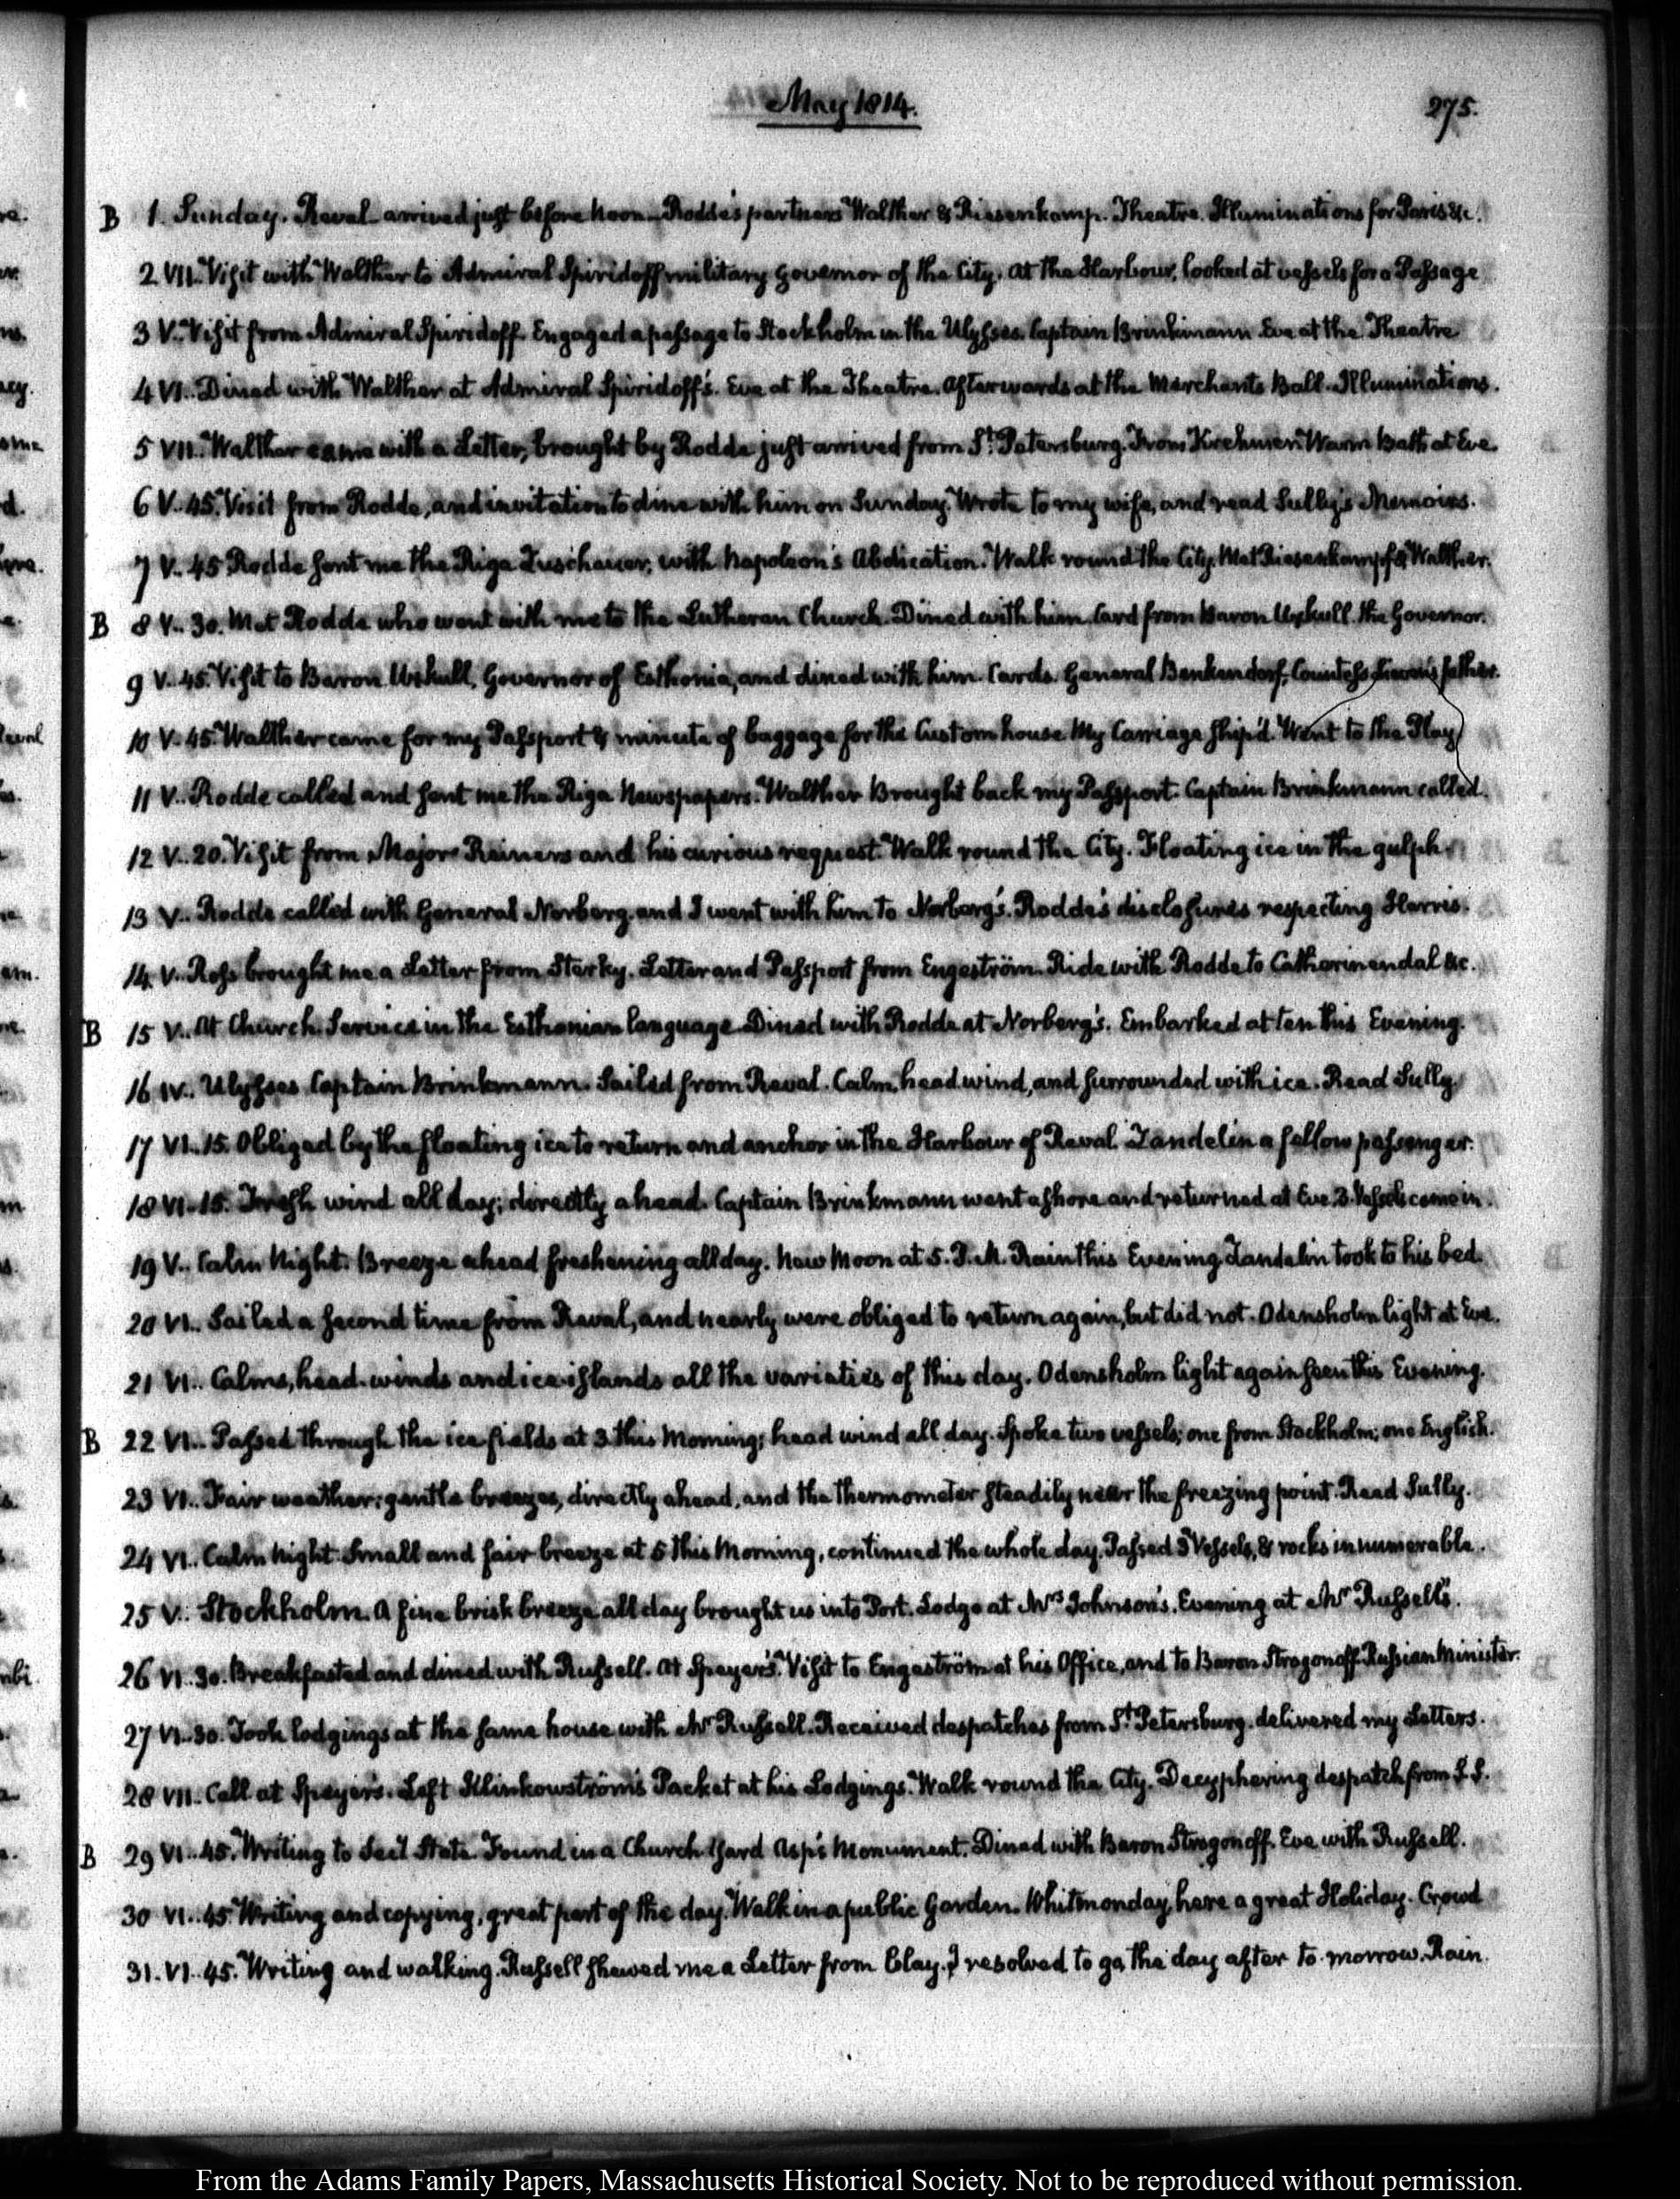 May 1814.
275.
B 1. Sunday. Reval arrived just before noon. Rodde's partners Walther & Riesenkamp. Theatre. Illuminations for Paris &c.
2 VII. Visit with Walther to Admiral Spiridoff military governor of the City. at the Harbour, looked at vessels for a Passage
3 V. Visit from Admiral Spiridoff. Engaged a passage to Stockholm in the Ulysses. Captain Brinkmann. Eve at the Theatre
4 VI. Dined with Walther at Admiral Spiridoff's. Eve at the Theatre. afterwards at the Merchants Ball. Illuminations.
5 VII. Walther came with a Letter, brought by Rodde just arrived from St. Petersburg. From Krehmer. Warm Bath at Eve.
6 V. 45. Visit from Rodde, and invitation to dine with him on Sunday. Wrote to my wife, and read Sully's Memoirs.
7 V. 45 Rodde sent me the Riga Zuschauer, with Napoleon's Abdication. Walk round the City. Met Riesenkampf & Walther.
B 8 V. 30. Met Rodde who went with me to the Lutheran Church. Dined with him. Card from Baron Uxkull. the Governor.
9 V. 45. Visit to Baron Uxkull, Governor of Esthonia, and dined with him. Cards. General Benkendorf, Countess Lieven's father.
10 V. 45. Walther came for my Passport & minute of baggage for the Custom house My Carriage ship'd. Went to the Play
11 V. Rodde called and sent me the Riga Newspapers. Walther Brought back my Passport. Captain Brinkmann called.
12 V. 20. Visit from Major Reiners and his curious request. Walk round the City. Floating ice in the gulph.
13 V. Rodde called with General Norberg. and I went with him to Norberg's. Rodde's disclosures respecting Harris.
14 V. Ross brought me a Letter from Sterky. Letter and Passport from Engeström. Ride with Rodde to Catharinendal &c.
B 15 V. At Church. Service in the Esthonian language. Dined with Rodde at Norberg's. Embarked at ten this Evening.
16 IV. Ulysses Captain Brinkmann. Sailed from Reval. Calm, head wind, and surrounded with ice. Read Sully.
17 VI. 15. Obliged by the floating ice to return and anchor in the Harbour of Reval. Zandelin a fellow passenger.
18 VI. 15. Fresh wind all day; directly ahead. Captain Brinkmann went ashore and returned at Eve. 3. Vessels come in.
19 V. Calm Night. Breeze ahead freshening all day. New Moon at 5. P.M. Rain this Evening. Zandelin took to his bed.
20 VI. Sailed a second time from Reval, and nearly were obliged to return again, but did not. Odensholm light at Eve.
21 VI. Calms, head-winds and ice-islands all the varieties of this day. Odensholm light again seen this Evening.
B 22 VI. Passed through the ice fields at 3 this Morning; head wind all day. Spoke two vessels; one from Stockholm; one English.
23 VI. Fair weather; gentle breezes, directly ahead, and the thermometer steadily near the freezing point. Read Sully.
24 VI. Calm Night. Small and fair breeze at 5 this Morning, continued the whole day. Passed 3 Vessels, & rocks innumerable.
25 V. Stockholm. A fine brisk breeze all day brought us into Port. Lodge at Mrs Johnson's. Evening at Mr Russell's.
26 VI. 30. Breakfasted and dined with Russell. At Speyer's. Visit to Engeström at his Office, and to Baron Strogonoff Russian Minister.
27 VI. 30. Took lodgings at the same house with Mr Russell. Received despatches from St. Petersburg. delivered my Letters.
28 VII. Call at Speyer's. Left Klinkowström's Packet at his Lodgings. Walk round the City. Decyphering despatch from S.S.
B 29 VI. 45. Writing to Sec'y State. Found in a Church Yard Asp's Monument. Dined with Baron Strogonoff. Eve with Russell.
30 VI. 45. Writing and copying, great part of the day. Walk in a public Garden. Whitmonday, here a great Holiday. Crowd
31. VI. 45. Writing and walking. Russell shewed me a Letter from Clay. I resolved to go the day after to-morrow. Rain.
From the Adams Family Papers, Massachusetts Historical Society. Not to be reproduced without permission.